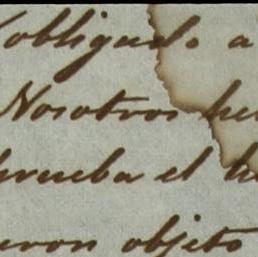 obligado a
Nosotros he
prueba el h
eron objeto